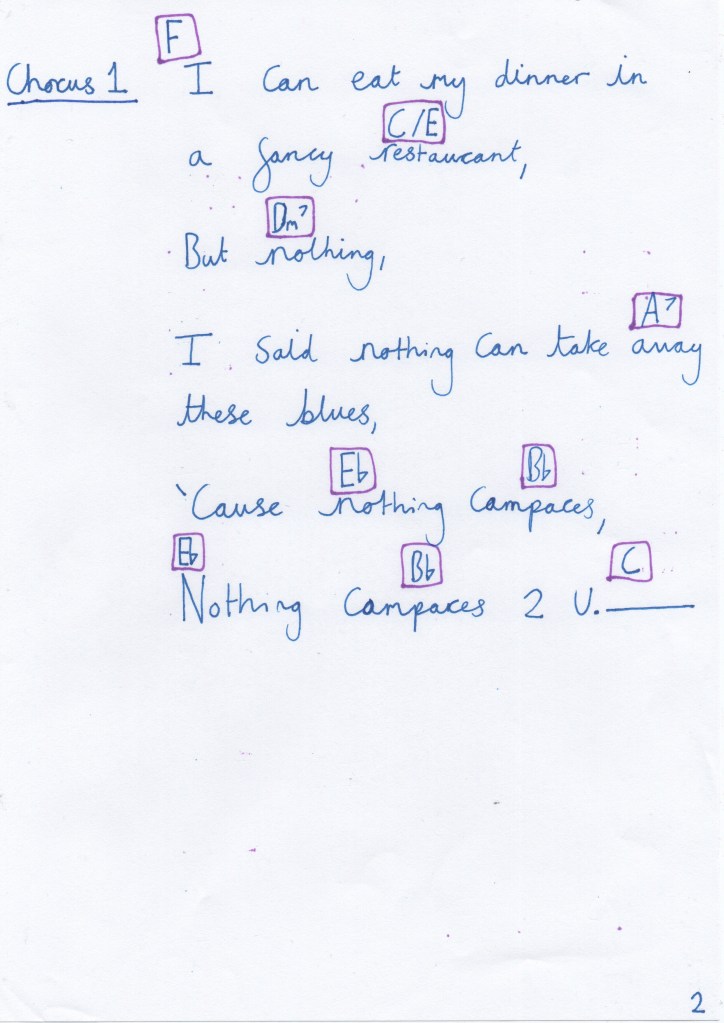 F
Chorus 1 I can eat my dinner in
C/E
a fancy restaurant,
Dm7
But nothing,
A7
I said nothing can take away
these blues,
Eb Bb
'Cause nothing compares,
Eb Bb C
Nothing compares 2 U.
2